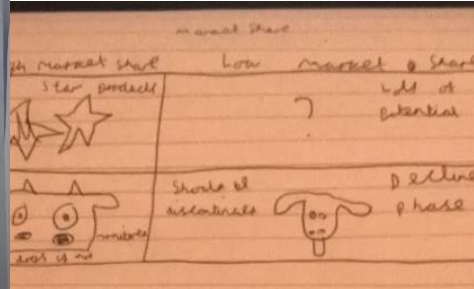 market share
gh market share Low market share
Star products
?
Lots of
potential
Should be
discontinued
Decline
phase